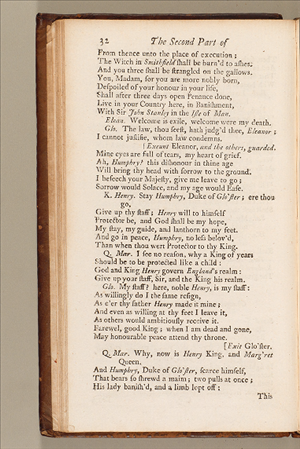 32 The Second Part of
From thence unto the place of execution ;
The Witch in Smithfield ſhall be burn'd to aſhes,
And you three ſhall be ſtrangled on the gallows.
You, Madam, for you are more nobly born,
Deſpoiled of your honour in your life,
Shall after three days open Penance done,
Live in your Country here, in Baniſhment,
With Sir John Stanley in the Iſle of Man.
Elean. Welcome is exile, welcome were my death.
Glo. The law, thou ſeeſt, hath judg'd thee, Eleanor ;
I cannot juſtifie, whom law condemns.
[Exeunt Eleanor, and the others, guarded.
Mine eyes are full of tears, my heart of grief.
Ah, Humphry! this diſhonour in thine age
Will bring thy head with ſorrow to the ground.
I beſeech your Majeſty, give me leave to go ;
Sorrow would Solace, and my age would Eaſe.
K. Henry. Stay Humphry, Duke of Glo'ſter; ere thou
go,
Give up thy ſtaff ; Henry will to himſelf
Protector be, and God ſhall be my hope,
My ſtay, my guide, and lanthorn to my feet.
And go in peace, Humphry, no leſs belov'd,
Than when thou wert Protector to thy King.
Q. Mar. I ſee no reaſon, why a King of years
Should be to be protected like a child :
God and King Henry govern England's realm :
Give up your ſtaff, Sir, and the King his realm.
Glo. My ſtaff? here, noble Henry, is my ſtaff :
As willingly do I the ſame reſign,
As e'er thy father Henry made it mine ;
And even as willing at thy feet I leave it,
As others would ambitiouſly receive it.
Farewel, good King ; when I am dead and gone,
May honourable peace attend thy throne.
[Exit Glo'ſter.
Q. Mar. Why, now is Henry King, and Marg'ret
Queen.
And Humphry, Duke of Glo'ſter, ſcarce himſelf,
That bears ſo ſhrewd a maim ; two pulls at once ;
His lady baniſh'd, and a limb lopt off ;
This